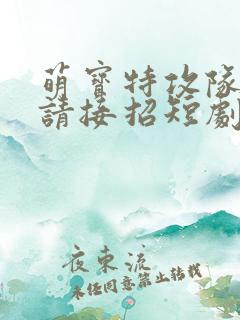 萌寶特攻隊
請接招短劇
夜東流
未任同意禁止轉載